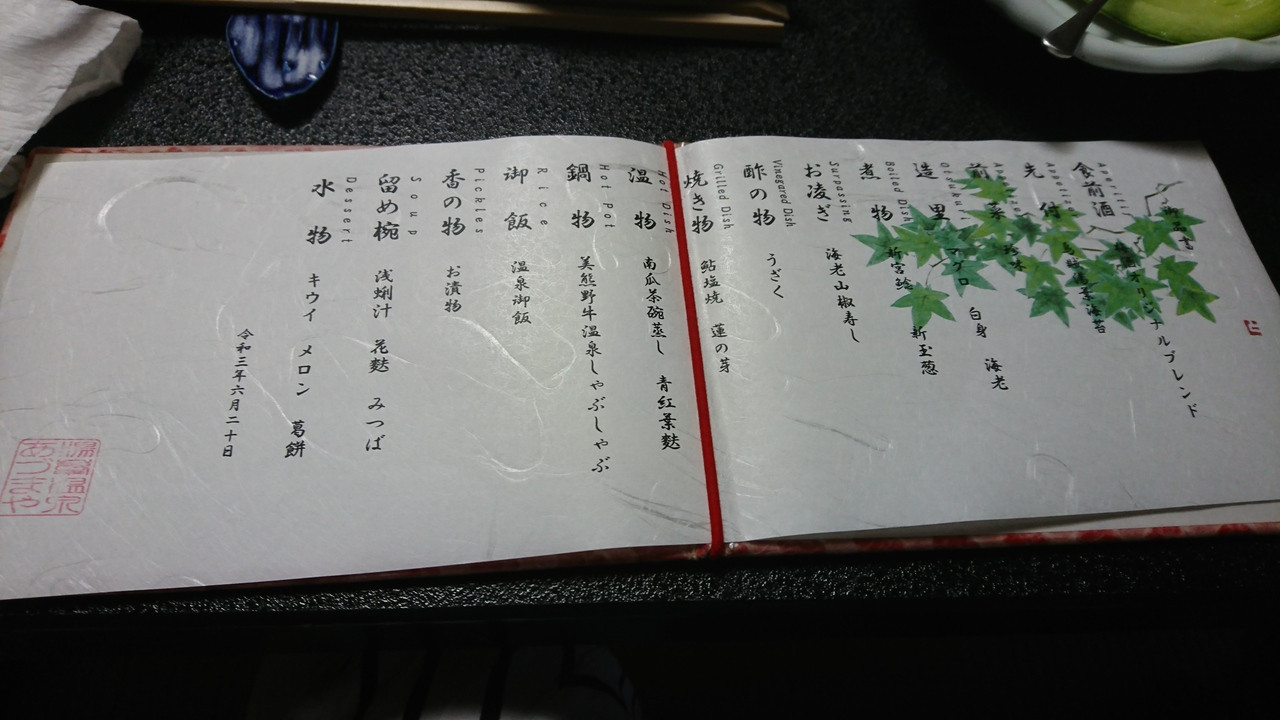 食前酒
Aperitif
オリジナルブレンド
先付
Appetizer
海苔
前菜
造里
Otsukuri
マグロ 白身 海老
煮物
Boiled Dish
新玉葱
お凌ぎ
Surpassing
海老山椒寿し
酢の物
Vinegared Dish
うざく
焼き物
Grilled Dish
鮎塩焼 蓮の芽
温物
Hot Dish
南瓜茶碗蒸し 青紅葉麩
鍋物
Hot Pot
美熊野牛温泉しゃぶしゃぶ
御飯
Rice
温泉御飯
香の物
Pickles
お漬物
留め椀
Soup
浅蜊汁 花麩 みつば
水物
Dessert
キウイ メロン 葛餅
令和三年六月二十日
湯峯温泉
あづまや